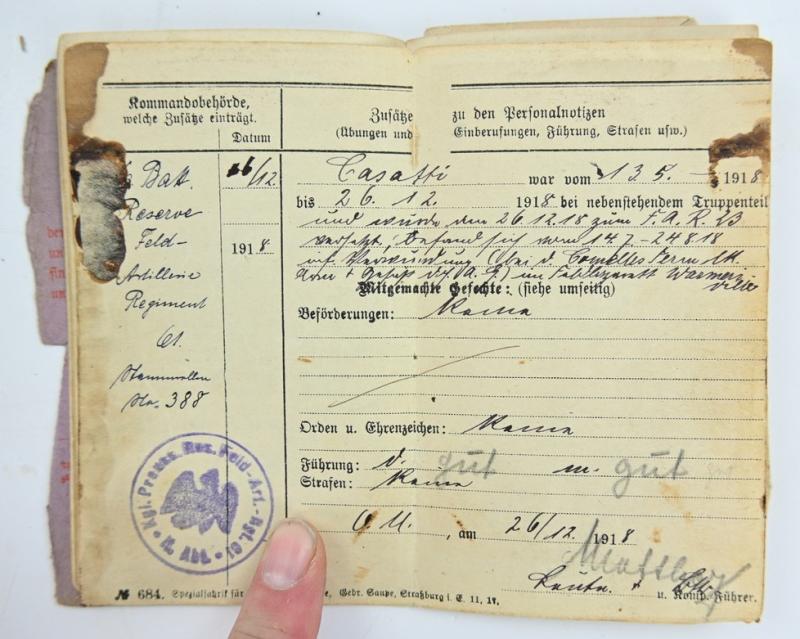 Kommandobehörde,
welche Zusätze einträgt.
Datum
Zusätze zu den Personalnotizen
(Übungen und Einberufungen, Führung, Strafen usw.)
Batt. 26/12.
Reserve
Feld- 1918
Artillerie
Regiment
61.
Stammrollen
No. 388
Casatti war vom 13 5. 1918
bis 26. 12. 1918 bei nebenstehendem Truppenteil
und wurde den 26.12.18 zum F. A. R. 23
versetzt, befand sich vom 14.7.-24.8.18
Verwundung (bei d.
im Feldlazarett
Mitgemachte Gefechte: (siehe umseitig)
Beförderungen: Keine
Orden u. Ehrenzeichen: Keine
Führung: d. gut m. gut
Strafen: Keine
O. U., am 26/12. 1918
Leutn. u. Komp. Führer.
Kgl. Preuss. Res. Feld-Art.-Rgt. 61
II. Abt.
№ 684. Spezialfabrik für Gebr. Saupe, Straßburg i. E. 11. 17.